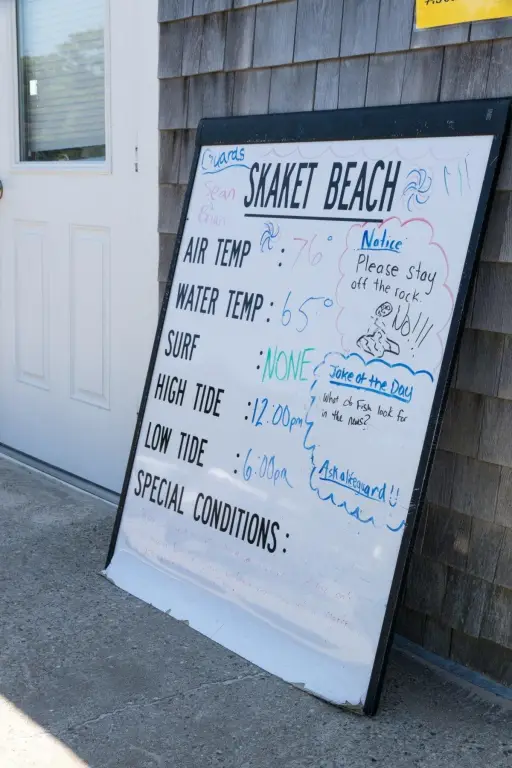 Guards
Sean
Brian
SKAKET BEACH
AIR TEMP : 76°
WATER TEMP : 65°
SURF : NONE
HIGH TIDE : 12:00pm
LOW TIDE : 6:00pm
SPECIAL CONDITIONS :
Notice
Please stay
off the rock.
No!!!
Joke of the Day
What do Fish look for
in the news?
Ask a lifeguard!!